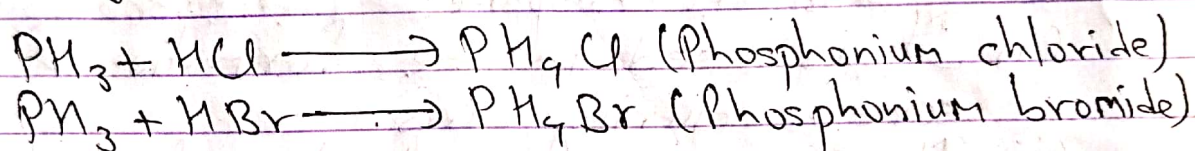 PH₃ + HCl ⟶ PH₄Cl (Phosphonium chloride)
PH₃ + HBr ⟶ PH₄Br (Phosphonium bromide)